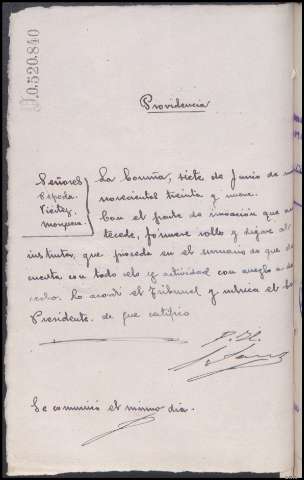 0.520.840
Providencia
Señores
Cépeda
Vieitez
La Coruña, siete de Junio de mil
novecientos treinta y nueve.
Con el parte de incoación que an-
tecede, fórmese rollo y dígase al
instructor, que proceda en el sumario de que dá
cuenta con todo celo y actividad con arreglo a de-
recho. Lo acordó el Tribunal y rubrica el Sr.
Presidente. de que certifico
Se comunicó el mismo dia.